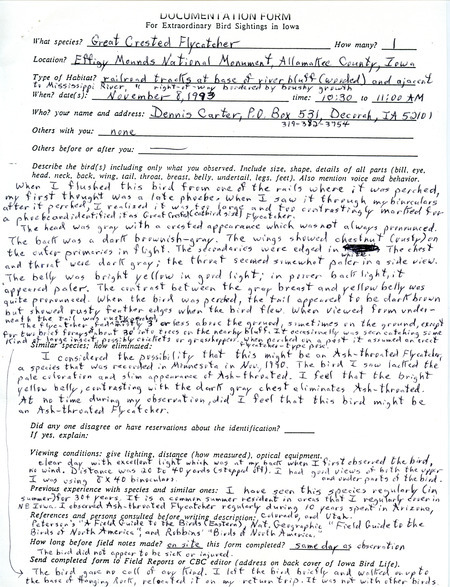 DOCUMENTATION FORM
For Extraordinary Bird Sightings in Iowa
What species? Great Crested Flycatcher How many? 1
Location? Effigy Mounds National Monument, Allamakee County, Iowa
Type of Habitat? railroad tracks at base of river bluff (wooded) and adjacent
to Mississippi River, right-of-way bordered by brushy growth
When? date(s): November 8, 1993 time: 10:30 to 11:00 AM
Who? your name and address: Dennis Carter, P.O. Box 531, Decorah, IA 52101
319-382-3754
Others with you: none
Others before or after you:
Describe the bird(s) including only what you observed. Include size, shape, details of all parts (bill, eye,
head, neck, back, wing, tail, throat, breast, belly, undertail, legs, feet). Also mention voice and behavior.
When I flushed this bird from one of the rails where it was perched,
my first thought was a late phoebe. When I saw it through my binoculars
after it perched, I realized it was too large and too contrastingly marked for
a phoebe and identified it as Great Crested Flycatcher.
The head was gray with a crested appearance which was not always pronounced.
The back was a dark brownish-gray. The wings showed chestnut (rusty) on
the outer primaries in flight. The secondaries were edged white. The chest
and throat were dark gray; the throat seemed somewhat paler in a side view.
The belly was bright yellow in good light; in poorer back light, it
appeared paler. The contrast between the gray breast and yellow belly was
quite pronounced. When the bird was perched, the tail appeared to be dark brown
but showed rusty feather edges when the bird flew. When viewed from under-
neath the tail was
The flycatcher fed mostly 3' or less above the ground, sometimes on the ground, except
for two brief forays about 30' into trees on the nearby bluff. It occasionally was seen catching some
kind of large insect, possibly crickets or grasshoppers. When perched on a post it assumed an erect
flycatcher-type pose.
Similar species; how eliminated:
I considered the possibility that this might be an Ash-throated Flycatcher,
a species that was recorded in Minnesota in Nov, 1990. The bird I saw lacked the
pale coloration and slim appearance of Ash-throated. I feel that the bright
yellow belly, contrasting with the dark gray chest eliminates Ash-throated.
At no time during my observation, did I feel that this bird might be
an Ash-throated Flycatcher.
Did any one disagree or have reservations about the identification?
If yes, explain:
Viewing conditions: give lighting, distance (how measured), optical equipment.
clear day with excellent light which was at my back when I first observed the bird,
no wind. Distance was 20 to 40 yards (stepped off). I had good views of both the upper
and under parts of the bird.
I was using 8 X 40 binoculars.
Previous experience with species and similar ones: I have seen this species regularly (in
summer) for 30+ years. It is a common summer resident in woods that I regularly cover in
NE Iowa. I observed Ash-throated Flycatcher regularly during 10 years spent in Arizona,
Colorado, and Utah.
References and persons consulted before writing description:
Peterson's "A Field Guide to the Birds (Eastern), Nat. Geographic "Field Guide to the
Birds of North America", and Robbins' "Birds of North America."
How long before field notes made? on site this form completed? same day as observation
The bird did not appear to be sick or injured.
Send completed form to Field Reports or CBC editor (address on back cover of Iowa Bird Life).
The bird gave no call of any kind. I left the bird briefly and walked up to
the base of Hanging Rock, relocated it on my return trip. It was not with other birds.